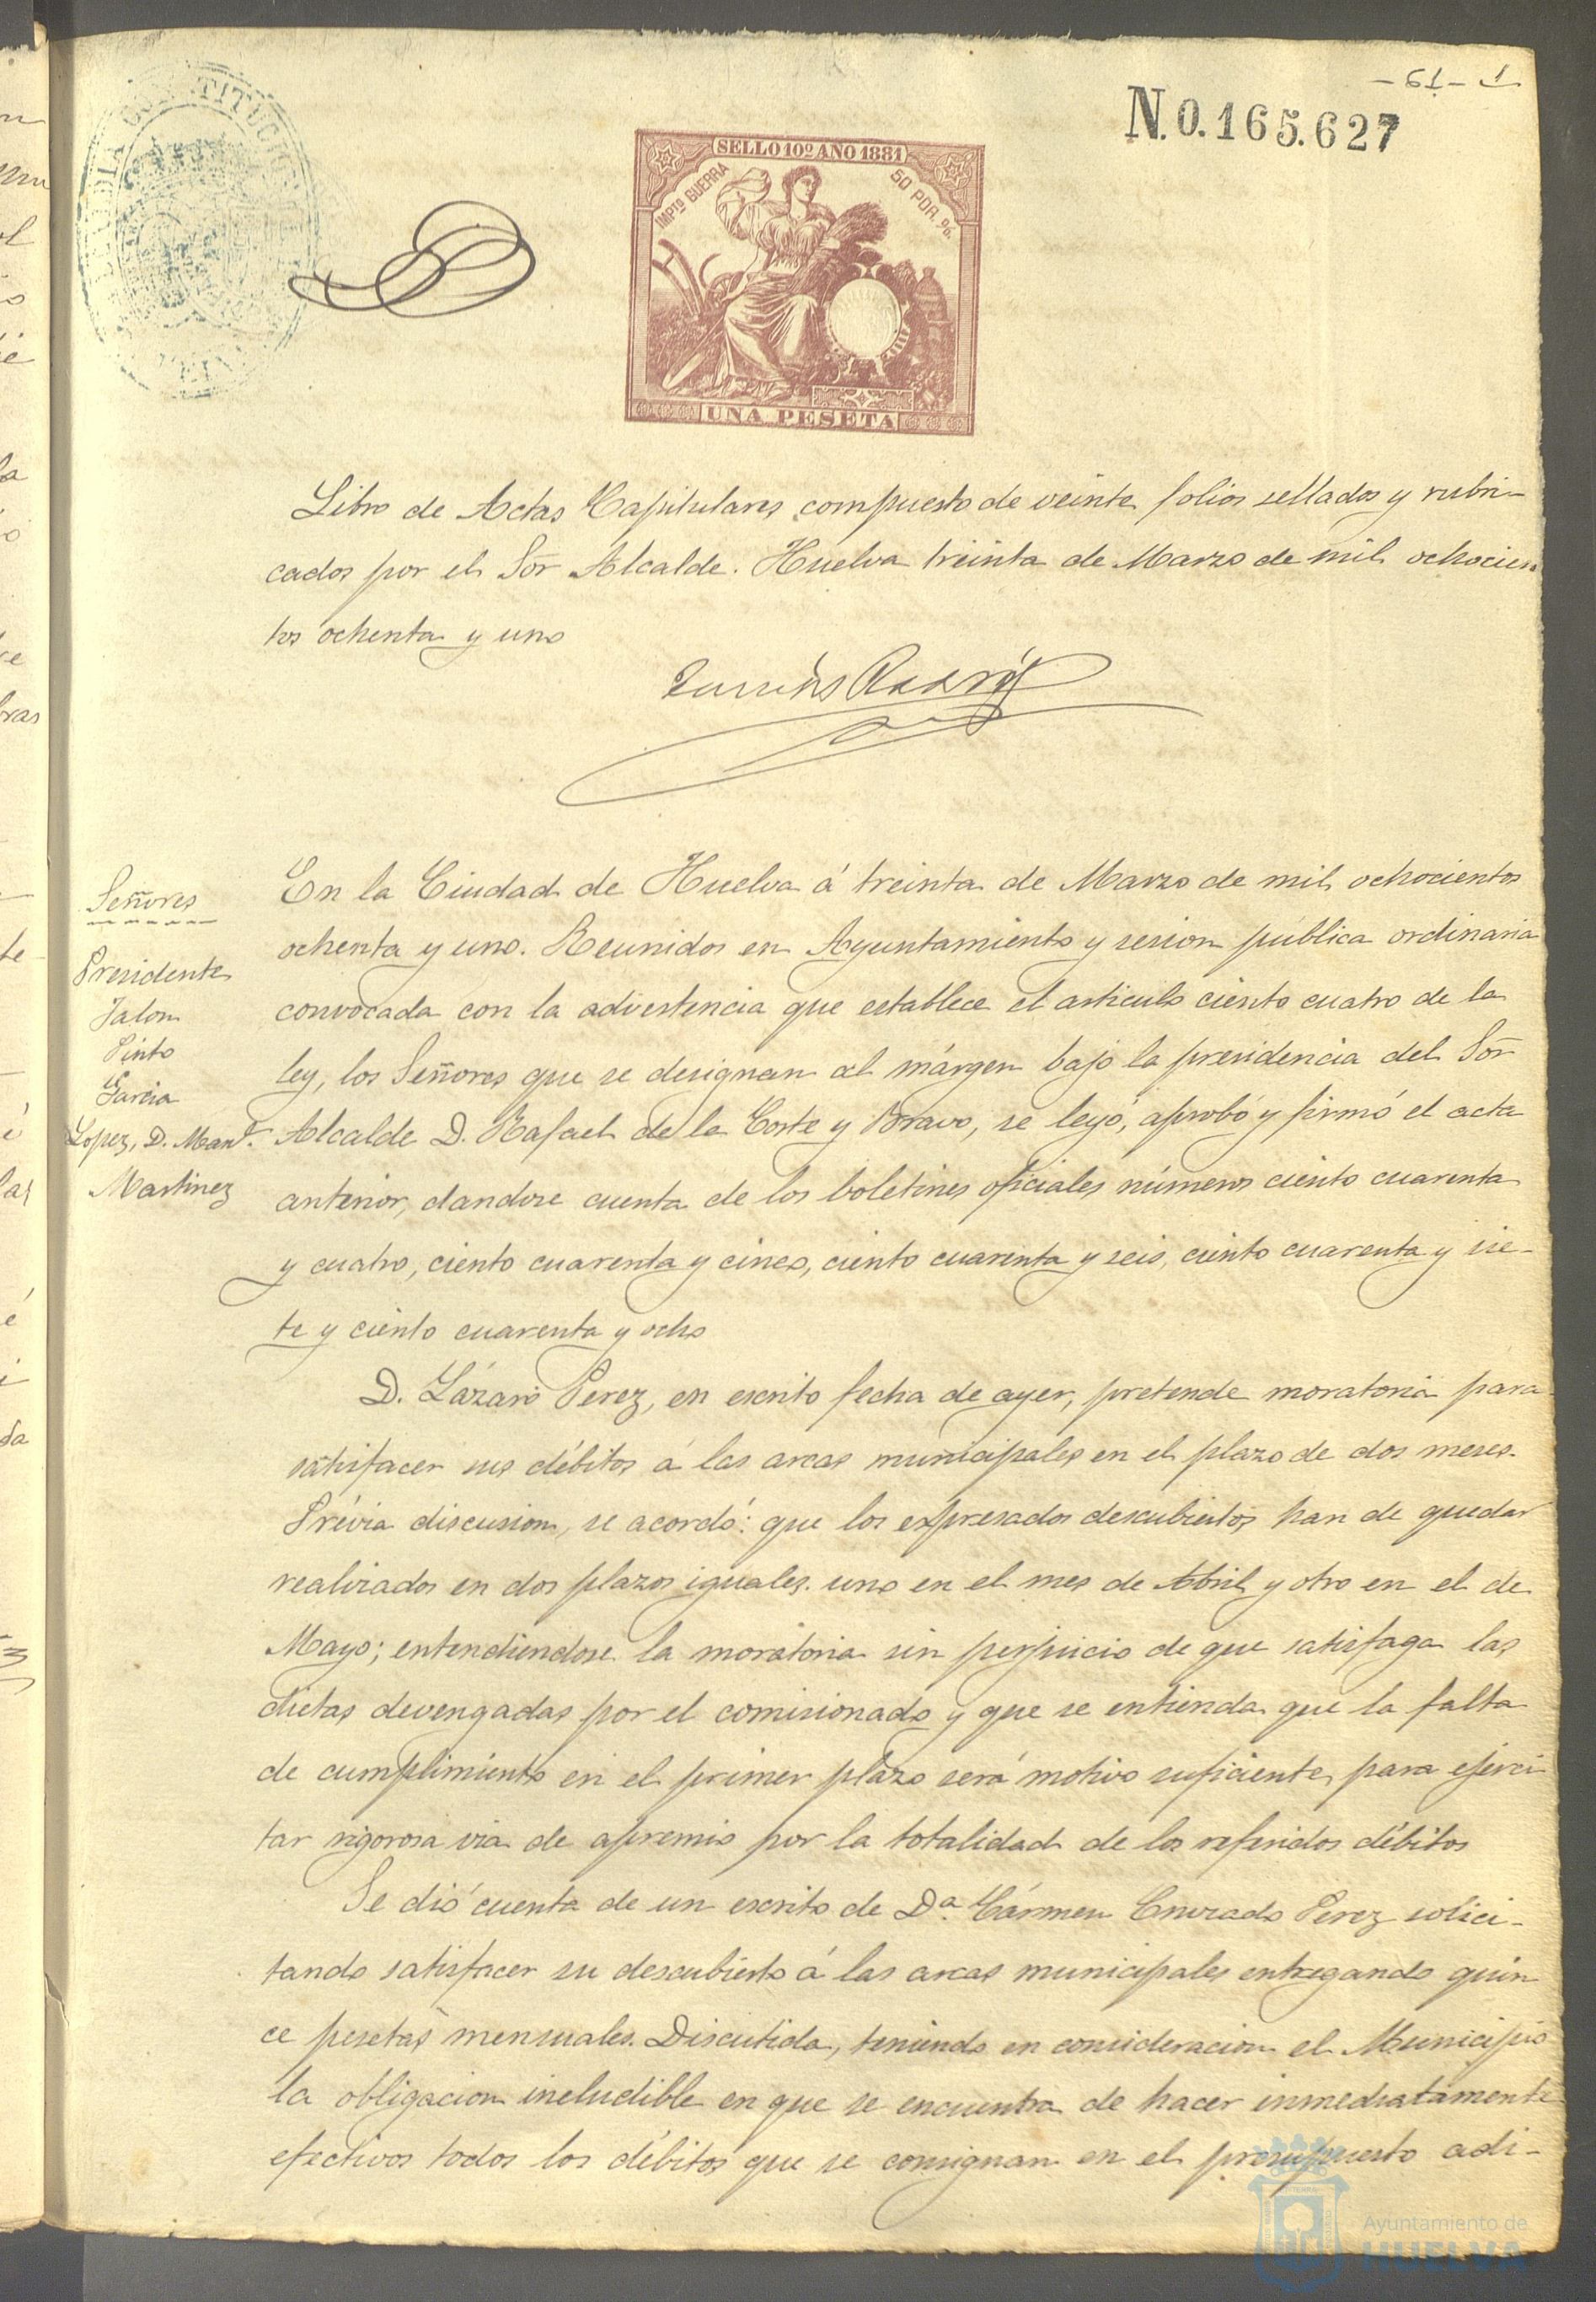 - 61 - 1
N.0.165.627
ALCALDIA CONSTITUCION
SELLO 10º AÑO 1881
IMPTO GUERRA
50 POR %.
UNA PESETA
Libro de Actas Capitulares compuesto de veinte folios sellados y rubri-
cados por el Sōr Alcalde. Huelva treinta de Marzo de mil ochocien
tos ochenta y uno
Señores
Presidente
Jalon
Pinto
Garcia
Lopez, D. Manl.
Martinez
En la Ciudad de Huelva á treinta de Marzo de mil ochocientos
ochenta y uno. Reunidos en Ayuntamiento y sesion pública ordinaria
convocada con la advertencia que establece el articulo ciento cuatro de la
ley, los Señores que se designan al márgen bajo la presidencia del Sōr
Alcalde D. Rafael de la Corte y Bravo, se leyó, aprobó y firmó el acta
anterior, dandose cuenta de los boletines oficiales números ciento cuarenta
y cuatro, ciento cuarenta y cinco, ciento cuarenta y seis, ciento cuarenta y sie-
te y ciento cuarenta y ocho
D. Lázaro Perez, en escrito fecha de ayer, pretende moratoria para
satisfacer sus débitos á las arcas municipales en el plazo de dos meses.
Prévia discusion, se acordó: que los expresados descubiertos han de quedar
realizados en dos plazos iguales. uno en el mes de Abril y otro en el de
Mayo; entendiendose la moratoria sin perjuicio de que satisfaga las
dietas devengadas por el comisionado y que se entienda que la falta
de cumplimiento en el primer plazo será motivo suficiente para ejerci
tar rigorosa via de apremio por la totalidad de los referidos débitos
Se dió cuenta de un escrito de Dª. Cármen Perez solici-
tando satisfacer su descubierto á las arcas municipales entregando quin
ce pesetas mensuales. Discutida, teniendo en consideracion el Municipio
la obligacion ineludible en que se encuentra de hacer inmediatamente
efectivos todos los débitos que se consignan en el presupuesto adi-
Ayuntamiento de
HUELVA